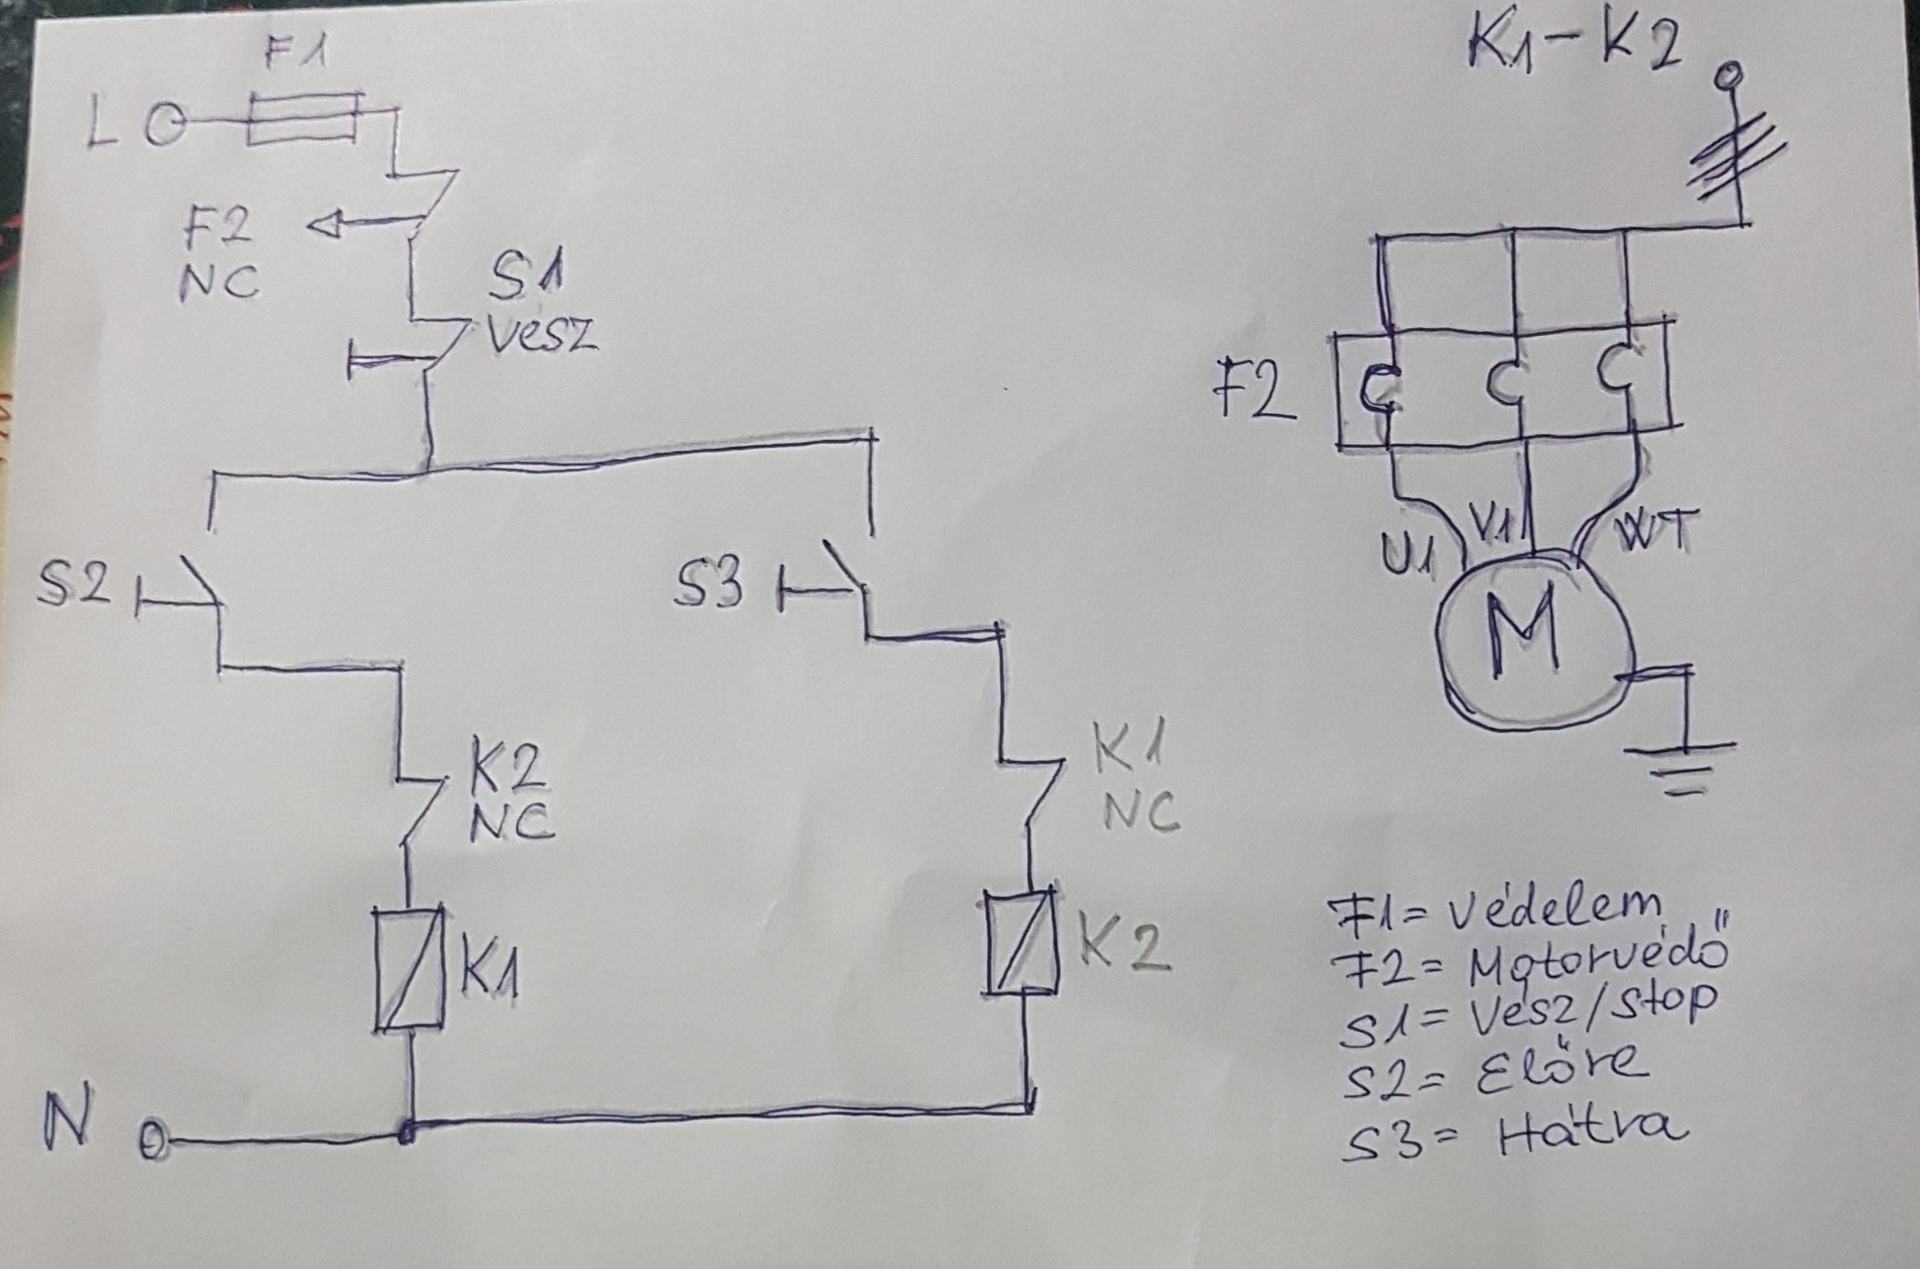 F1
K1-K2
L
F2
NC
S1
Vész
F2
U1
V1
WT
S2
S3
M
K2
NC
K1
NC
K1
K2
F1= Védelem
F2= Motorvédő
S1= Vész/stop
S2= Előre
S3= Hátra
N